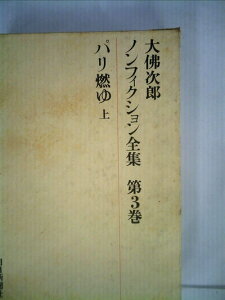 大佛次郎
ノンフィクション全集 第3巻
パリ燃ゆ 上